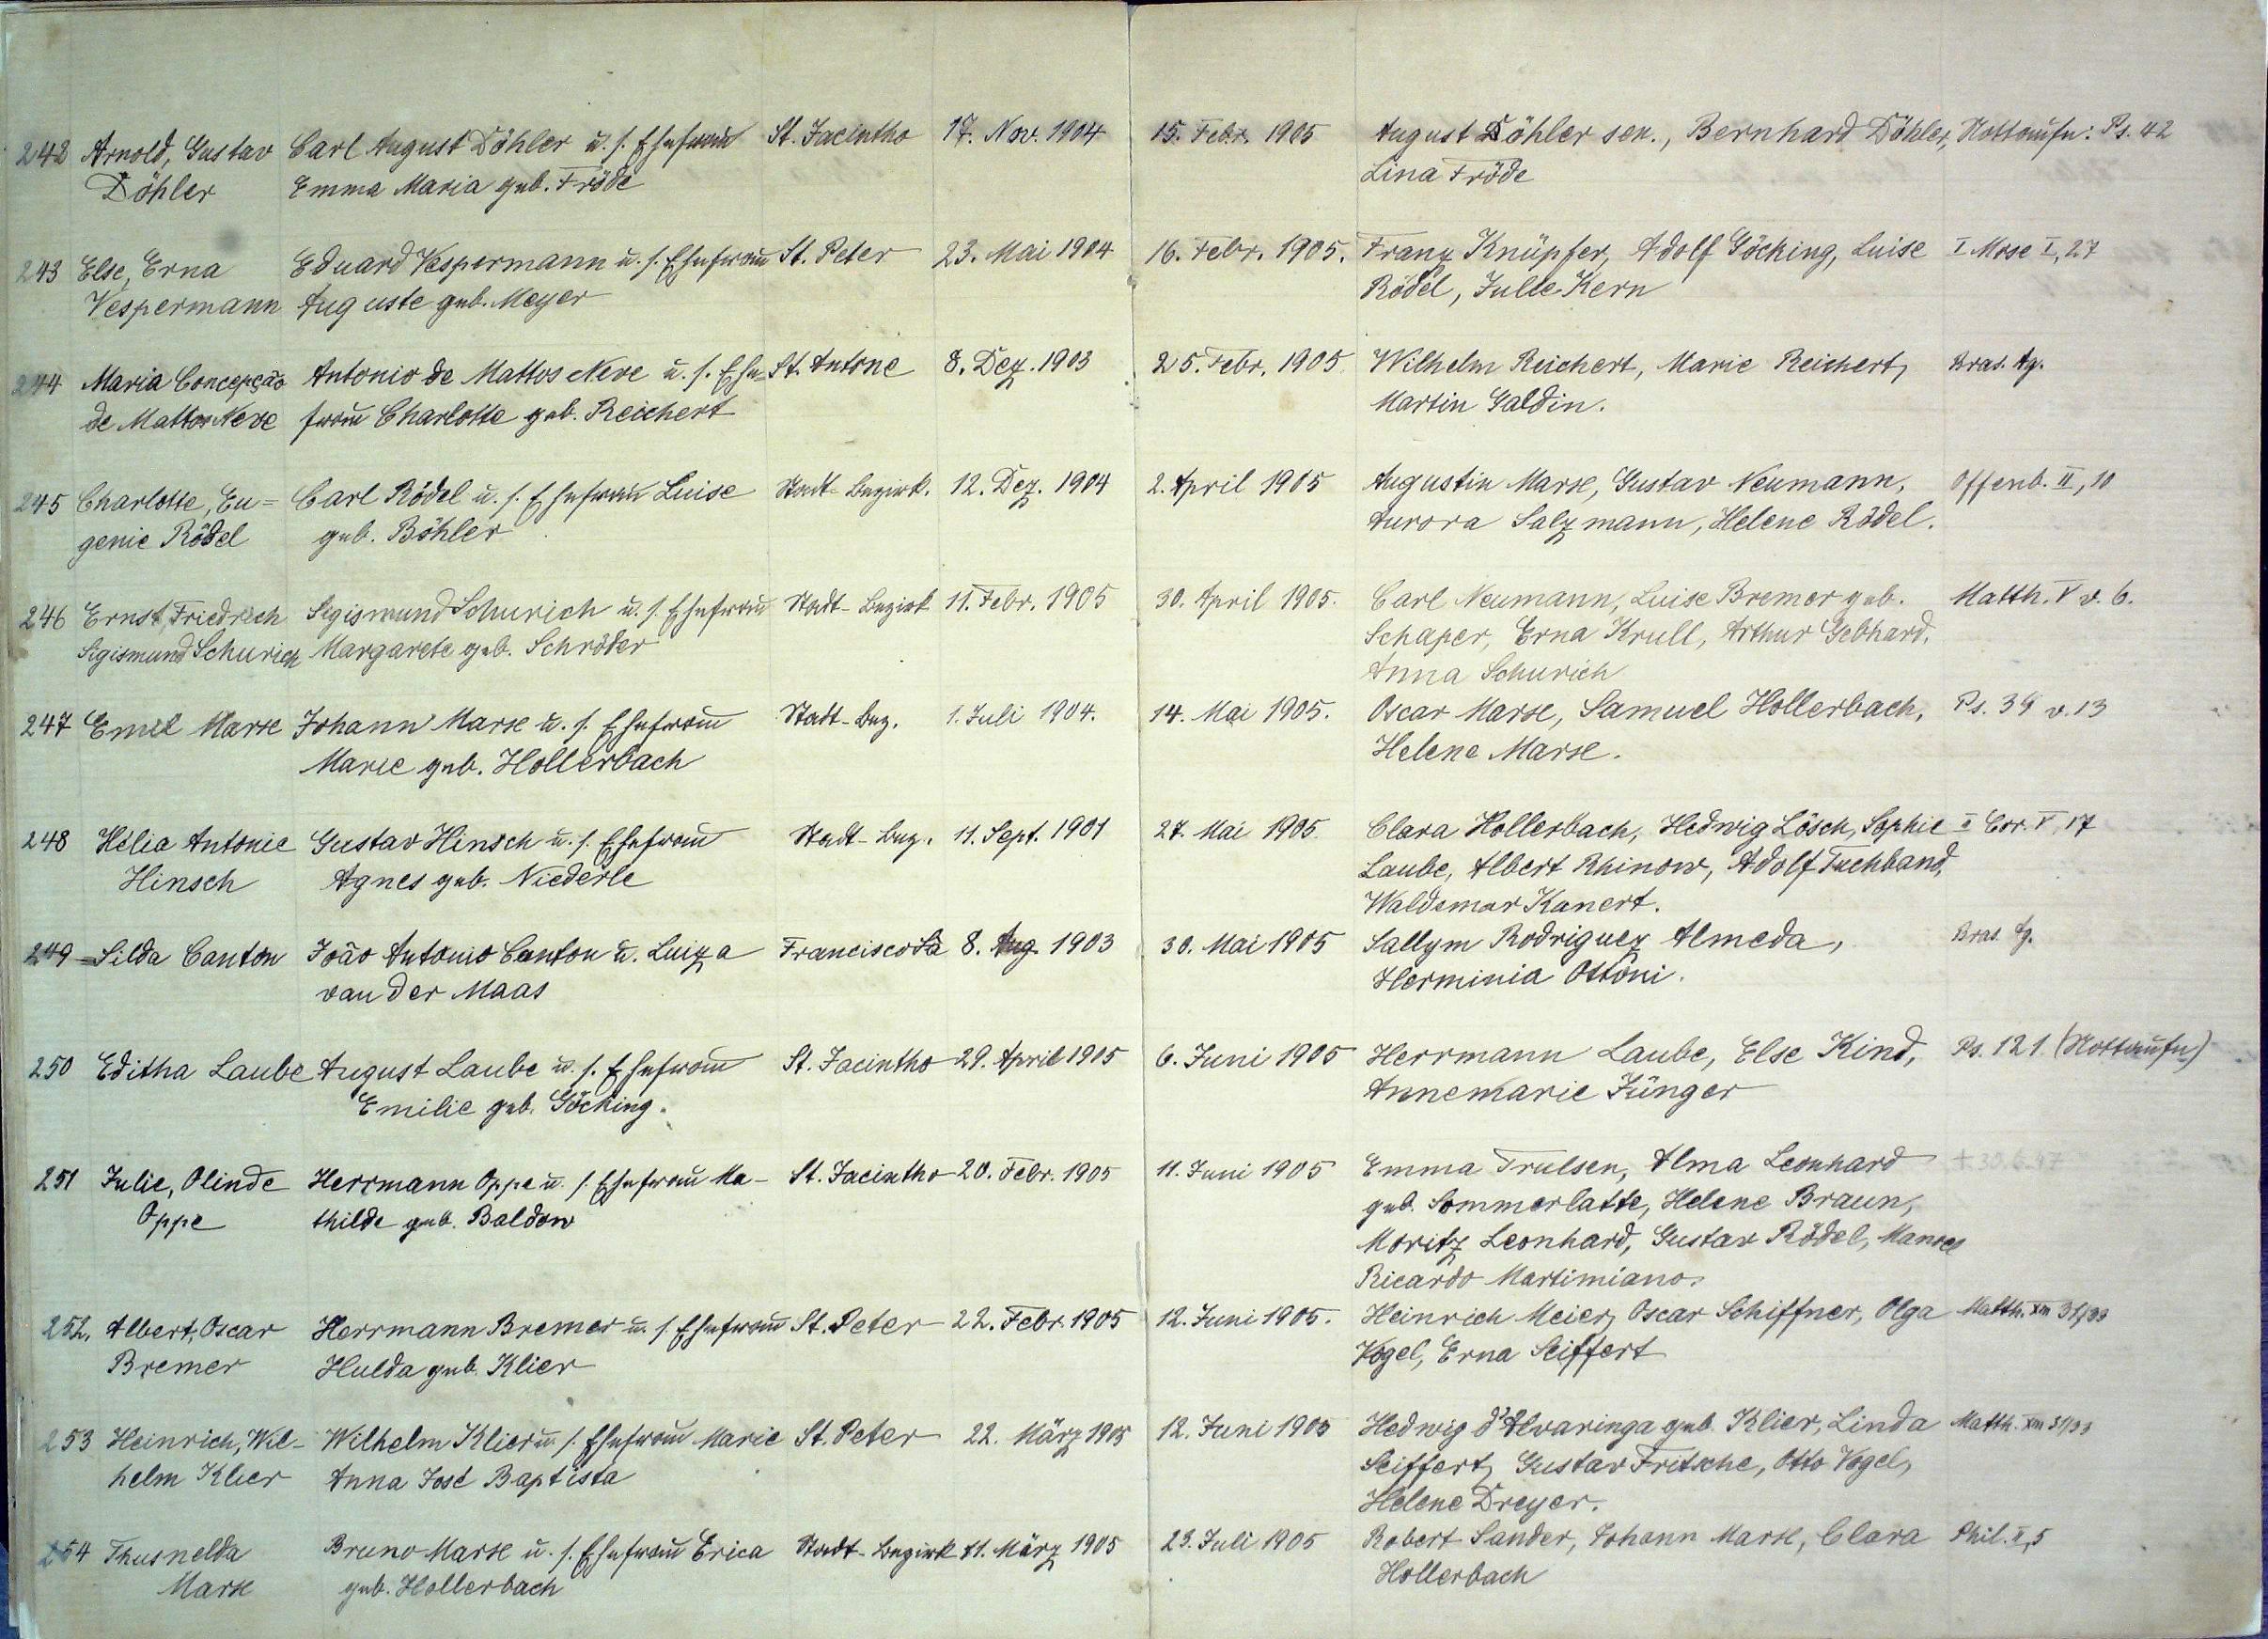 242 Arnold, Gustav Carl August Döhler u. s. Ehefrau St. Jacintho 17. Nov. 1904 15. Febr. 1905 August Döhler sen., Bernhard Döhler, Nottaufe: Ps. 42
Döhler Emma Maria geb. Fröde Lina Fröde
243 Else, Erna Eduard Vespermann u. s. Ehefrau St. Peter 23. Mai 1904 16. Febr. 1905. Franz Knüpfer, Adolf Göcking, Luise I Mose I, 27
Vespermann Auguste geb. Meyer Rödel, Julie Kern
244 Maria Concepção Antonio de Mattos Neve u. s. Ehe= St. Antone 8. Dez. 1903 25. Febr. 1905 Wilhelm Reichert, Marie Reichert, Bras. Ag.
de Mattos Neve frau Charlotte geb. Reichert Martin Galdin.
245 Charlotte, Eu= Carl Rödel u. s. Ehefrau Luise Stadt-Bezirk. 12. Dez. 1904 2. April 1905 Augustin Marse, Gustav Neumann, Offenb. II, 10
genie Rödel geb. Böhler Aurora Salzmann, Helene Rödel.
246 Ernst, Friedrich Sigismund Schurich u. s. Ehefrau Stadt-Bezirk 11. Febr. 1905 30. April 1905. Carl Neumann, Luise Bremer geb. Matth. V v. 6.
Sigismund Schurich Margarete geb. Schröder Schaper, Erna Krull, Arthur Gebhard,
Anna Schurich
247 Emil Marse Johann Marse u. s. Ehefrau Stadt-Bez. 1. Juli 1904. 14. Mai 1905. Oscar Marse, Samuel Hollerbach, Ps. 39 v. 13
Marie geb. Hollerbach Helene Marse.
248 Hélia Antonie Gustav Hinsch u. s. Ehefrau Stadt-Bez. 11. Sept. 1901 27. Mai 1905. Clara Hollerbach, Hedwig Lösch, Sophie II Cor. V, 17
Hinsch Agnes geb. Niederle Laube, Albert Rhinow, Adolf Tuchband,
Waldemar Kanert.
249 Silda Canton João Antonio Canton u. Luiza Francisco Sa 8. Aug. 1903 30. Mai 1905 Sallym Rodriguez Almeda, Bras. Ag.
van der Maas Herminia Ottoni.
250 Editha Laube August Laube u. s. Ehefrau St. Jacintho 29. April 1905 6. Juni 1905 Herrmann Laube, Else Kind, Ps. 121 (Nottaufe)
Emilie geb. Göcking. Annemarie Jünger
251 Julie, Olinde Herrmann Oppe u. s. Ehefrau Ma- St. Jacintho 20. Febr. 1905 11. Juni 1905 Emma Trulsen, Alma Leonhard + 30.6.47
Oppe thilde geb. Baldow geb. Sommerlatte, Helene Braun,
Moritz Leonhard, Gustav Rödel, Manoel
Ricardo Martimiano.
252. Albert, Oscar Herrmann Bremer u. s. Ehefrau St. Peter 22. Febr. 1905 12. Juni 1905. Heinrich Meier, Oscar Schiffner, Olga Matth. XIII 31/33
Bremer Hulda geb. Klier Vogel, Erna Seiffert
253 Heinrich, Wil- Wilhelm Klier u. s. Ehefrau Marie St. Peter 22. März 1905 12. Juni 1905 Hedwig d'Alvaringa geb. Klier, Linda Matth. XIII 31/33
helm Klier Anna José Baptista Seiffert, Gustav Fritsche, Otto Vogel,
Helene Dreyer.
254 Thusnelda Bruno Marse u. s. Ehefrau Erica Stadt-Bezirk 11. März 1905 23. Juli 1905 Robert Sander, Johann Marse, Clara Phil. II, 5
Marse geb. Hollerbach Hollerbach